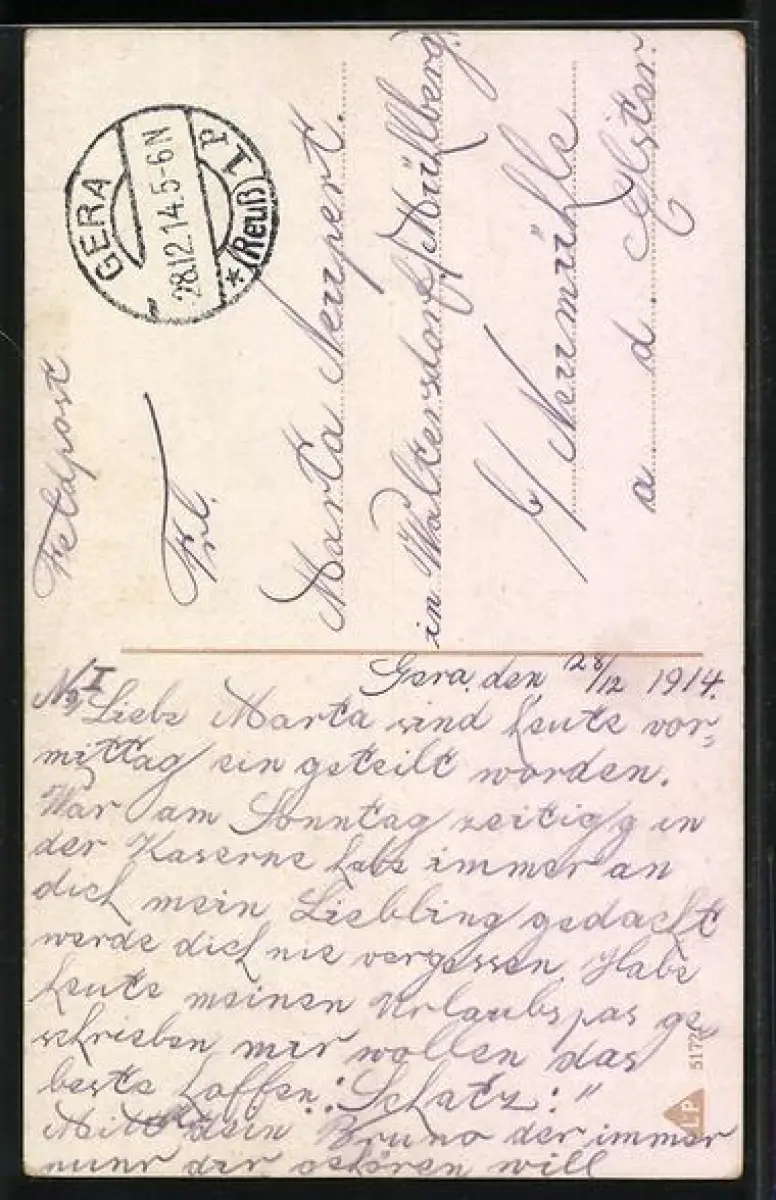 Feldpost
GERA
28.12.14.5-6N
* (Reuß) 1 P
Frl.
Marta Neupert.
in Waltersdorf/Mühlberg.
b/ Neumühle
a d Elster.
Gera, den 28/12 1914.
No I
Liebe Marta sind heute vor-
mittag ein geteilt worden.
War am Sonntag zeitig in
der Kaserne habe immer an
dich mein Liebling gedacht
werde dich nie vergessen. Habe
heute meinen Urlaubspas ge-
schrieben mir wollen das
beste hoffen: Schatz:"
dein Bruno der immer
nunr dir gehören will
51721
LP